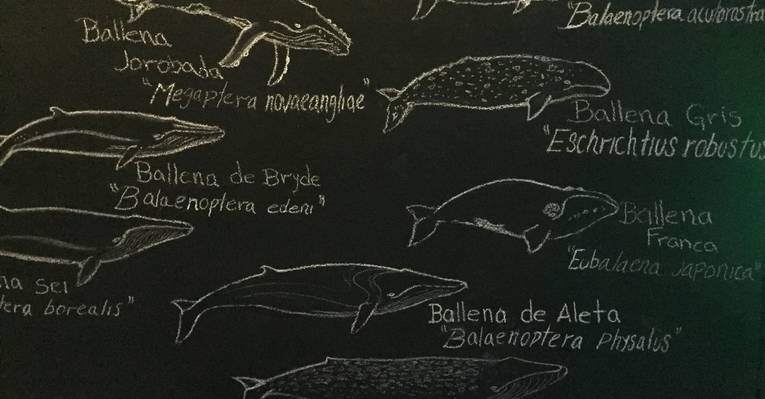 Ballena
Jorobada
"Megaptera novaeangliae"
"Balaenoptera acutorostra
Ballena Gris
"Eschrichtius robustus
Ballena de Bryde
"Balaenoptera edeni"
Ballena
Franca
"Eubalaena japonica"
na Sei
tera borealis"
Ballena de Aleta
"Balaenoptera physalus"